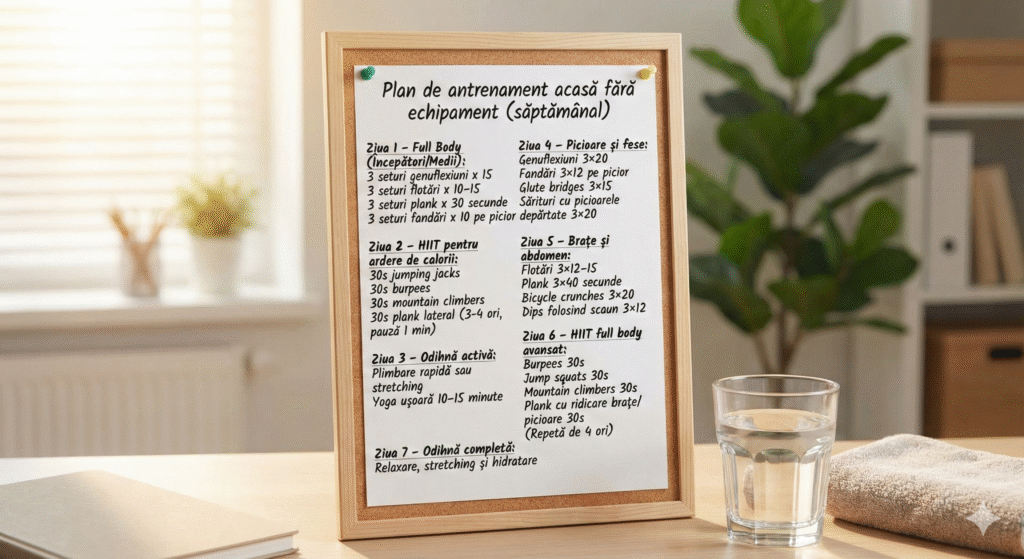 Plan de antrenament acasă fără
echipament (săptămânal)
Ziua 1 – Full Body
(Începători/Medii):
3 seturi genuflexiuni x 15
3 seturi flotări x 10–15
3 seturi plank x 30 secunde
3 seturi fandări x 10 pe picior
Ziua 2 – HIIT pentru
ardere de calorii:
30s jumping jacks
30s burpees
30s mountain climbers
30s plank lateral (3-4 ori,
pauză 1 min)
Ziua 3 – Odihnă activă:
Plimbare rapidă sau
stretching
Yoga ușoară 10–15 minute
Ziua 4 – Picioare și fese:
Genuflexiuni 3×20
Fandări 3×12 pe picior
Glute bridges 3×15
Sărituri cu picioarele
depărtate 3×20
Ziua 5 – Brațe și
abdomen:
Flotări 3×12–15
Plank 3×40 secunde
Bicycle crunches 3×20
Dips folosind scaun 3×12
Ziua 6 – HIIT full body
avansat:
Burpees 30s
Jump squats 30s
Mountain climbers 30s
Plank cu ridicare brațe/
picioare 30s
(Repetă de 4 ori)
Ziua 7 – Odihnă completă:
Relaxare, stretching și hidratare